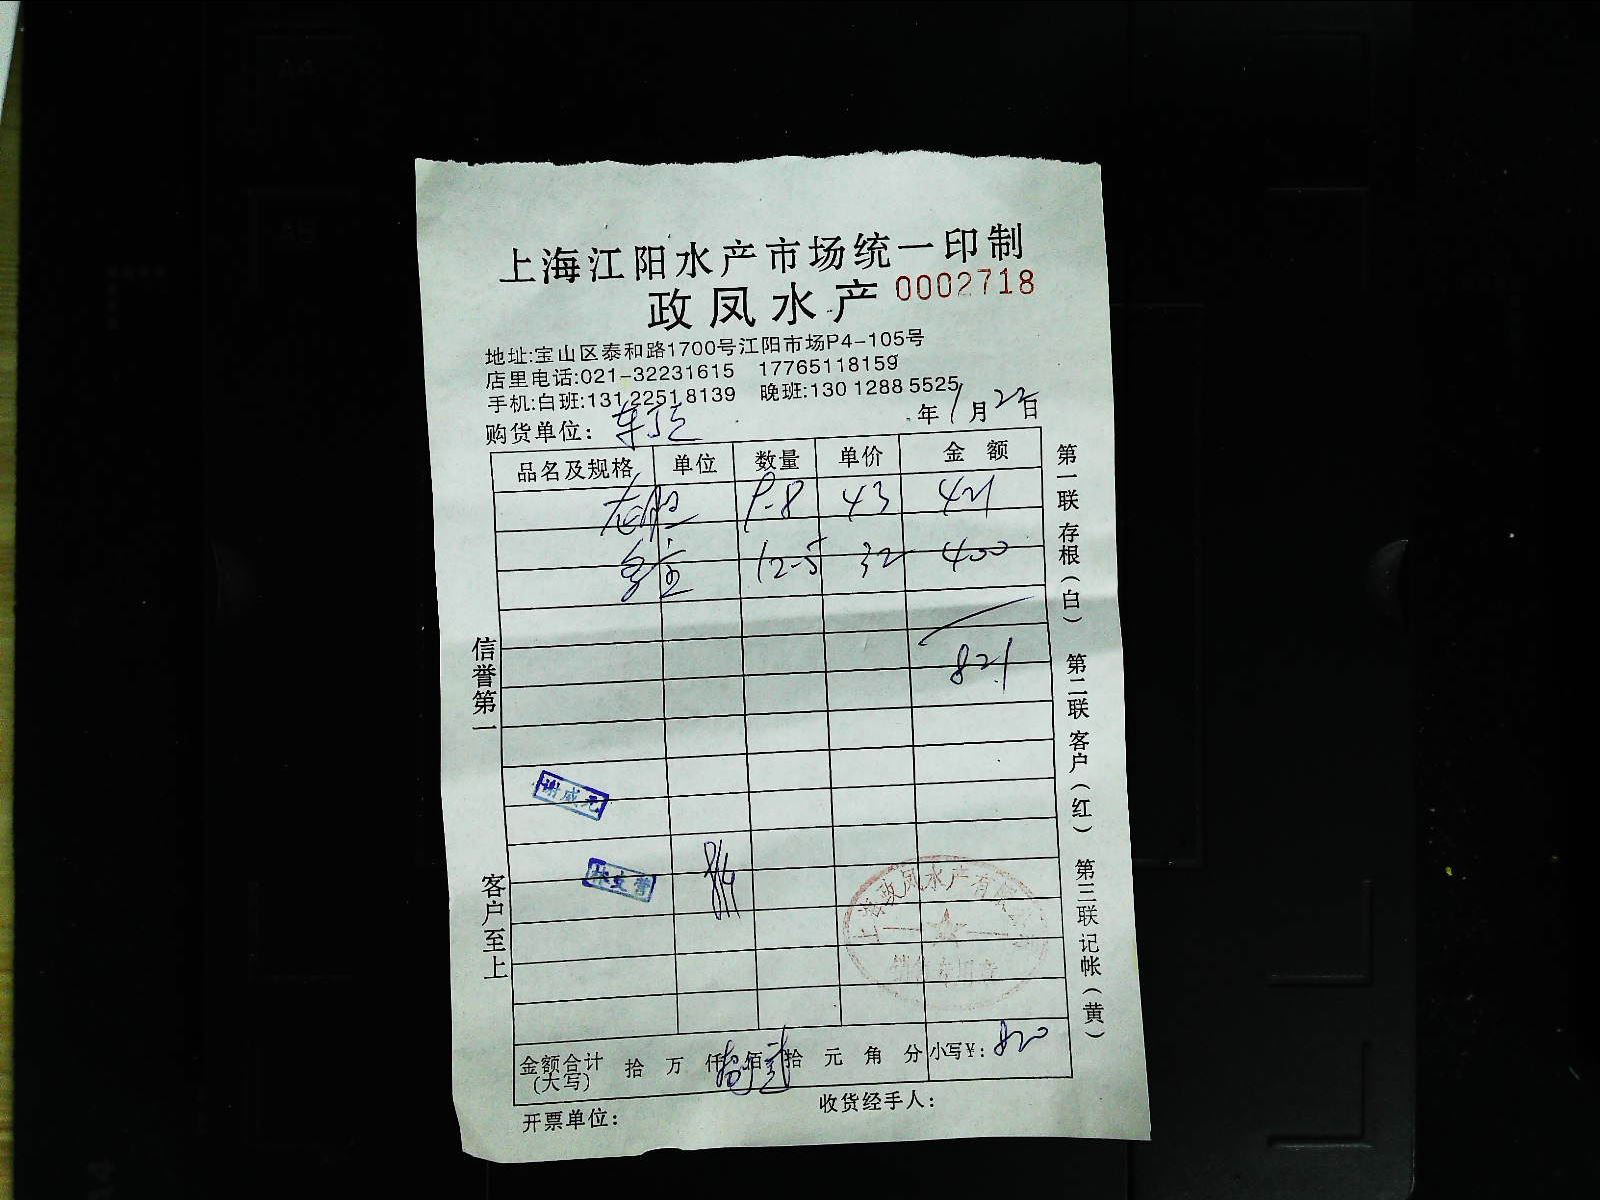 上海江阳水产市场统一印制
政凤水产 0002718
地址:宝山区泰和路1700号江阳市场P4-105号
店里电话:021-32231615 17765118159
手机:白班:13122518139 晚班:13012885525
购货单位: 年 1月22日
品名及规格 单位 数量 单价 金额
9-8 43 421
12-5 32 400
821
信誉第一
客户至上
第一联 存根(白) 第二联 客户(红) 第三联 记帐(黄)
谢咸元
政凤水产有限
金额合计(大写) 拾 万 仟 佰 拾 元 角 分 小写¥: 820
开票单位: 收货经手人: